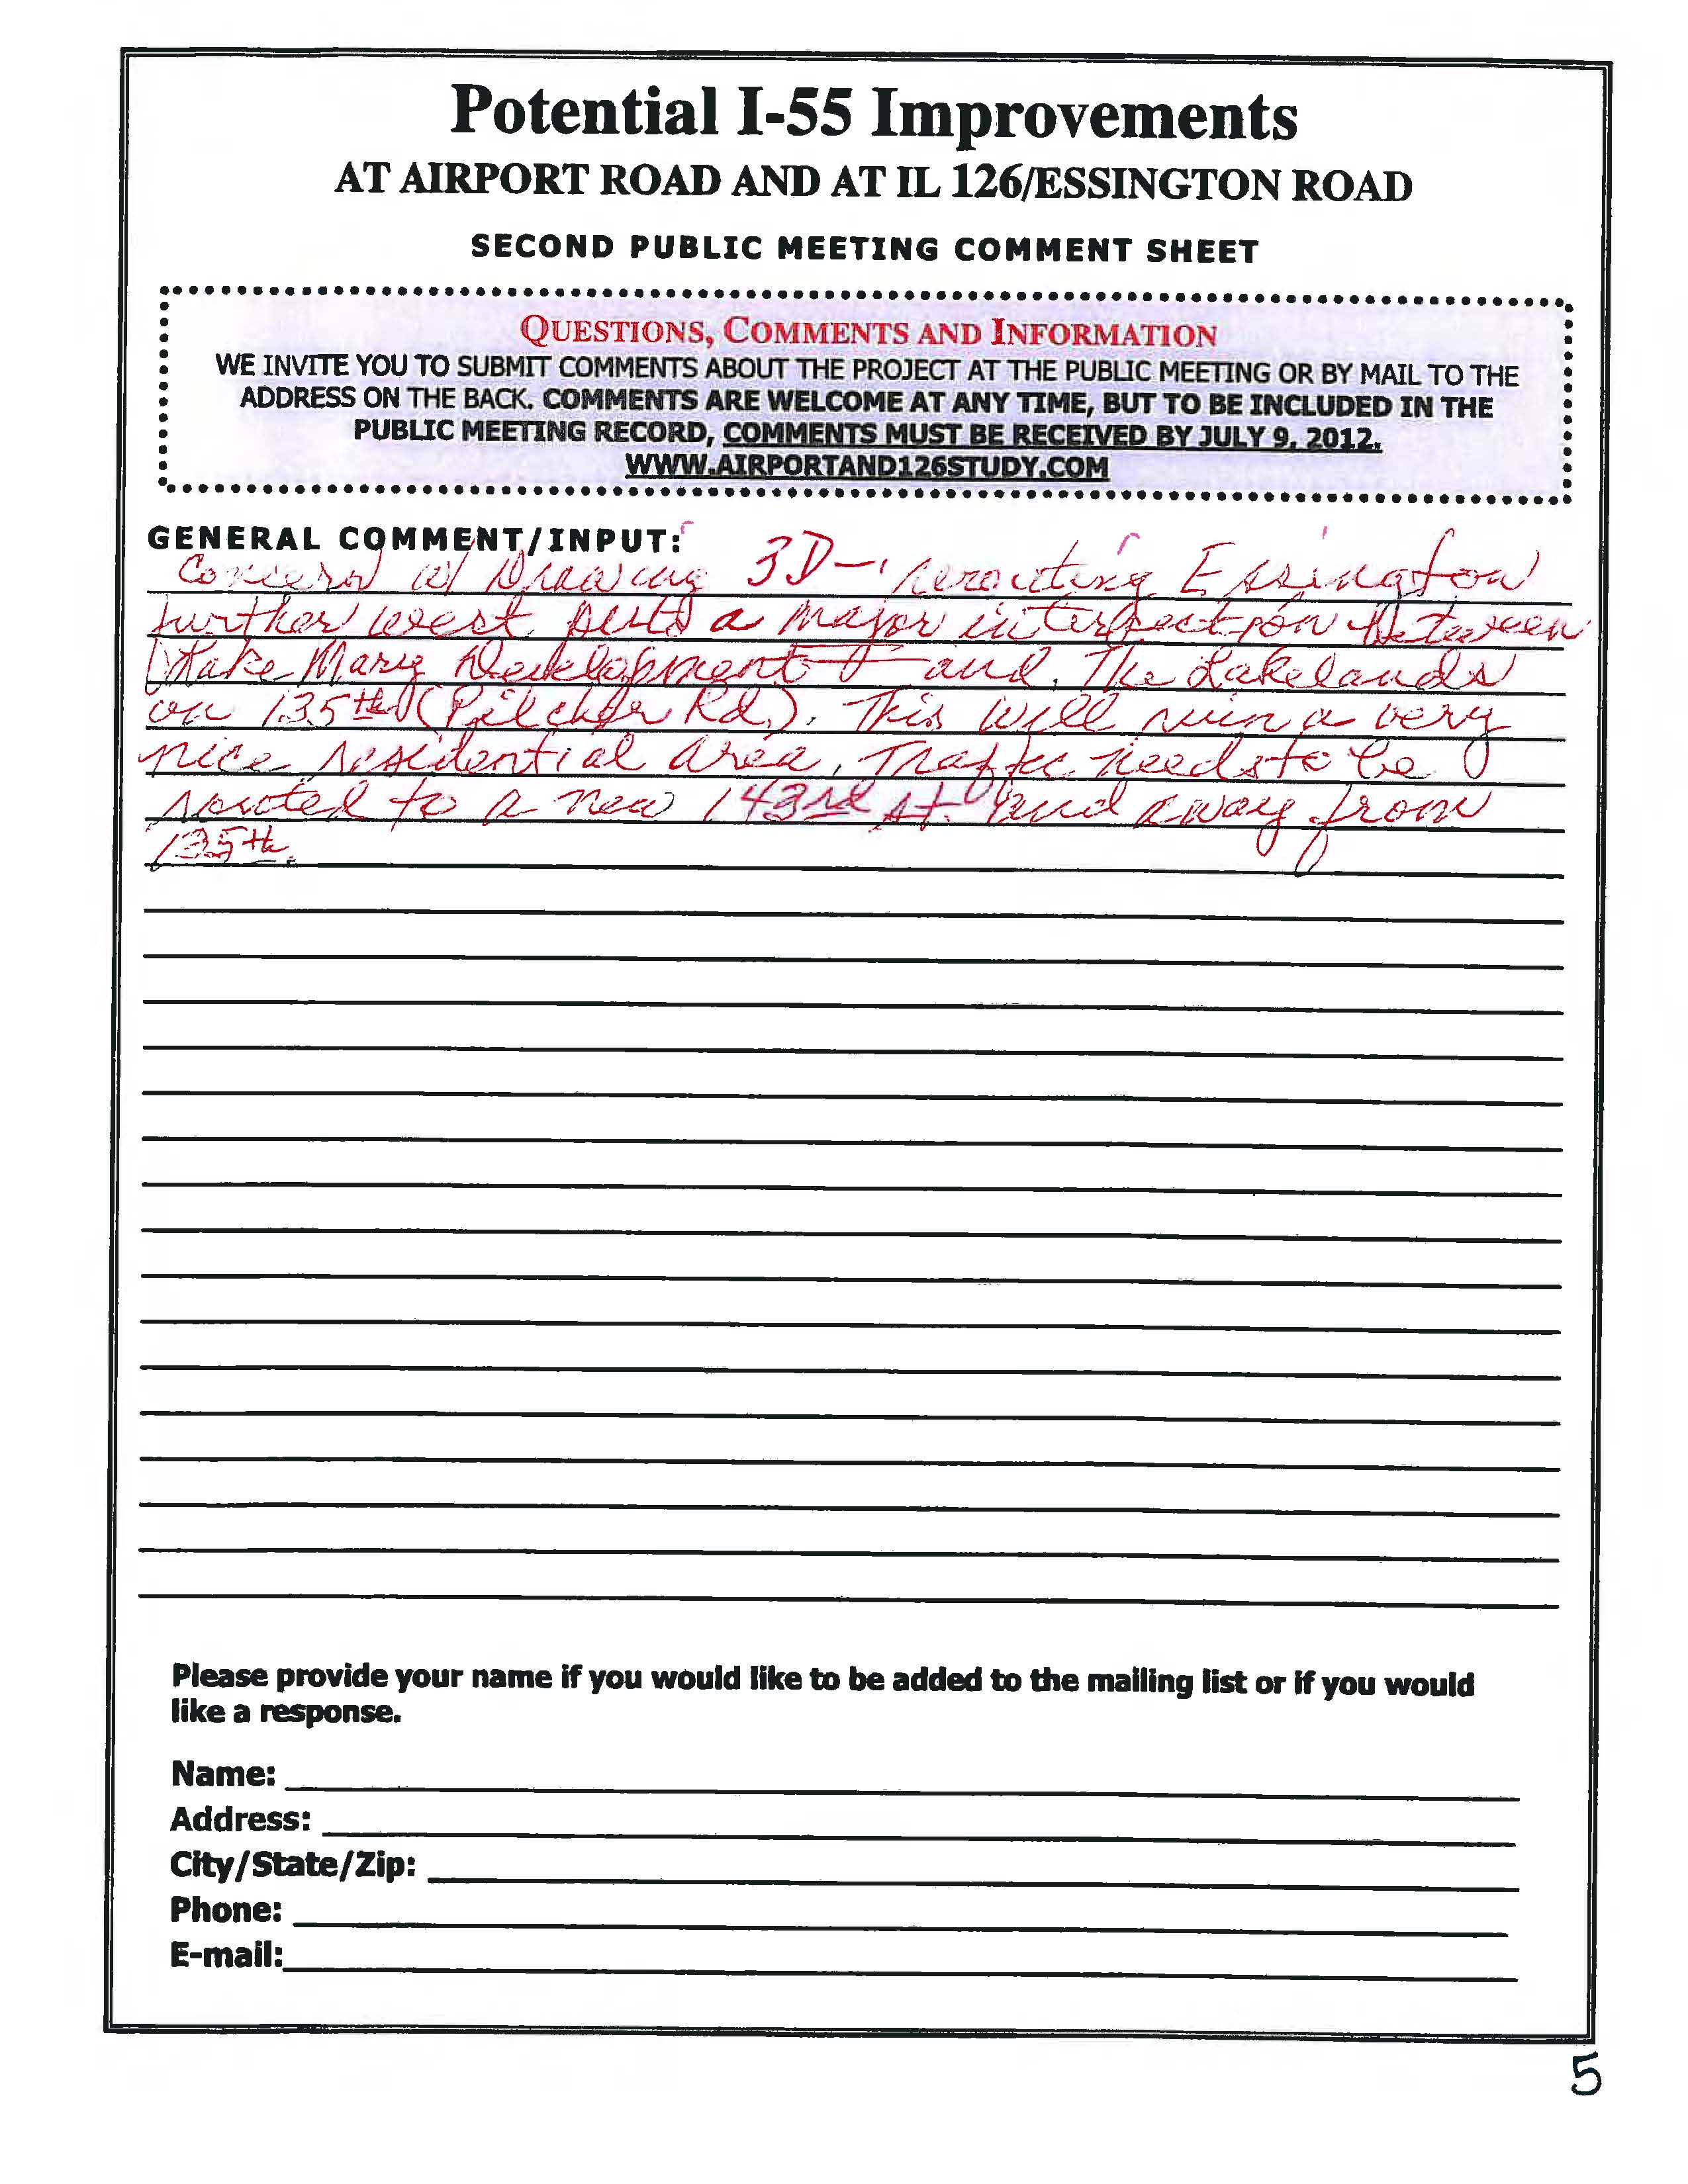 Potential I-55 Improvements
AT AIRPORT ROAD AND AT IL 126/ESSINGTON ROAD
SECOND PUBLIC MEETING COMMENT SHEET
QUESTIONS, COMMENTS AND INFORMATION
WE INVITE YOU TO SUBMIT COMMENTS ABOUT THE PROJECT AT THE PUBLIC MEETING OR BY MAIL TO THE
ADDRESS ON THE BACK. COMMENTS ARE WELCOME AT ANY TIME, BUT TO BE INCLUDED IN THE
PUBLIC MEETING RECORD, COMMENTS MUST BE RECEIVED BY JULY 9, 2012.
WWW.AIRPORTAND126STUDY.COM
GENERAL COMMENT/INPUT:
Concern w/ Drawing 3D - rerouting Essington
further west puts a major intersection between
Lake Mary Development and The Lakelands
on 135th (Pilcher Rd.). This will ruin a very
nice residential area. Traffic needs to be
routed to a new 143rd St. and away from
135th.
Please provide your name if you would like to be added to the mailing list or if you would
like a response.
Name:
Address:
City/State/Zip:
Phone:
E-mail:
5